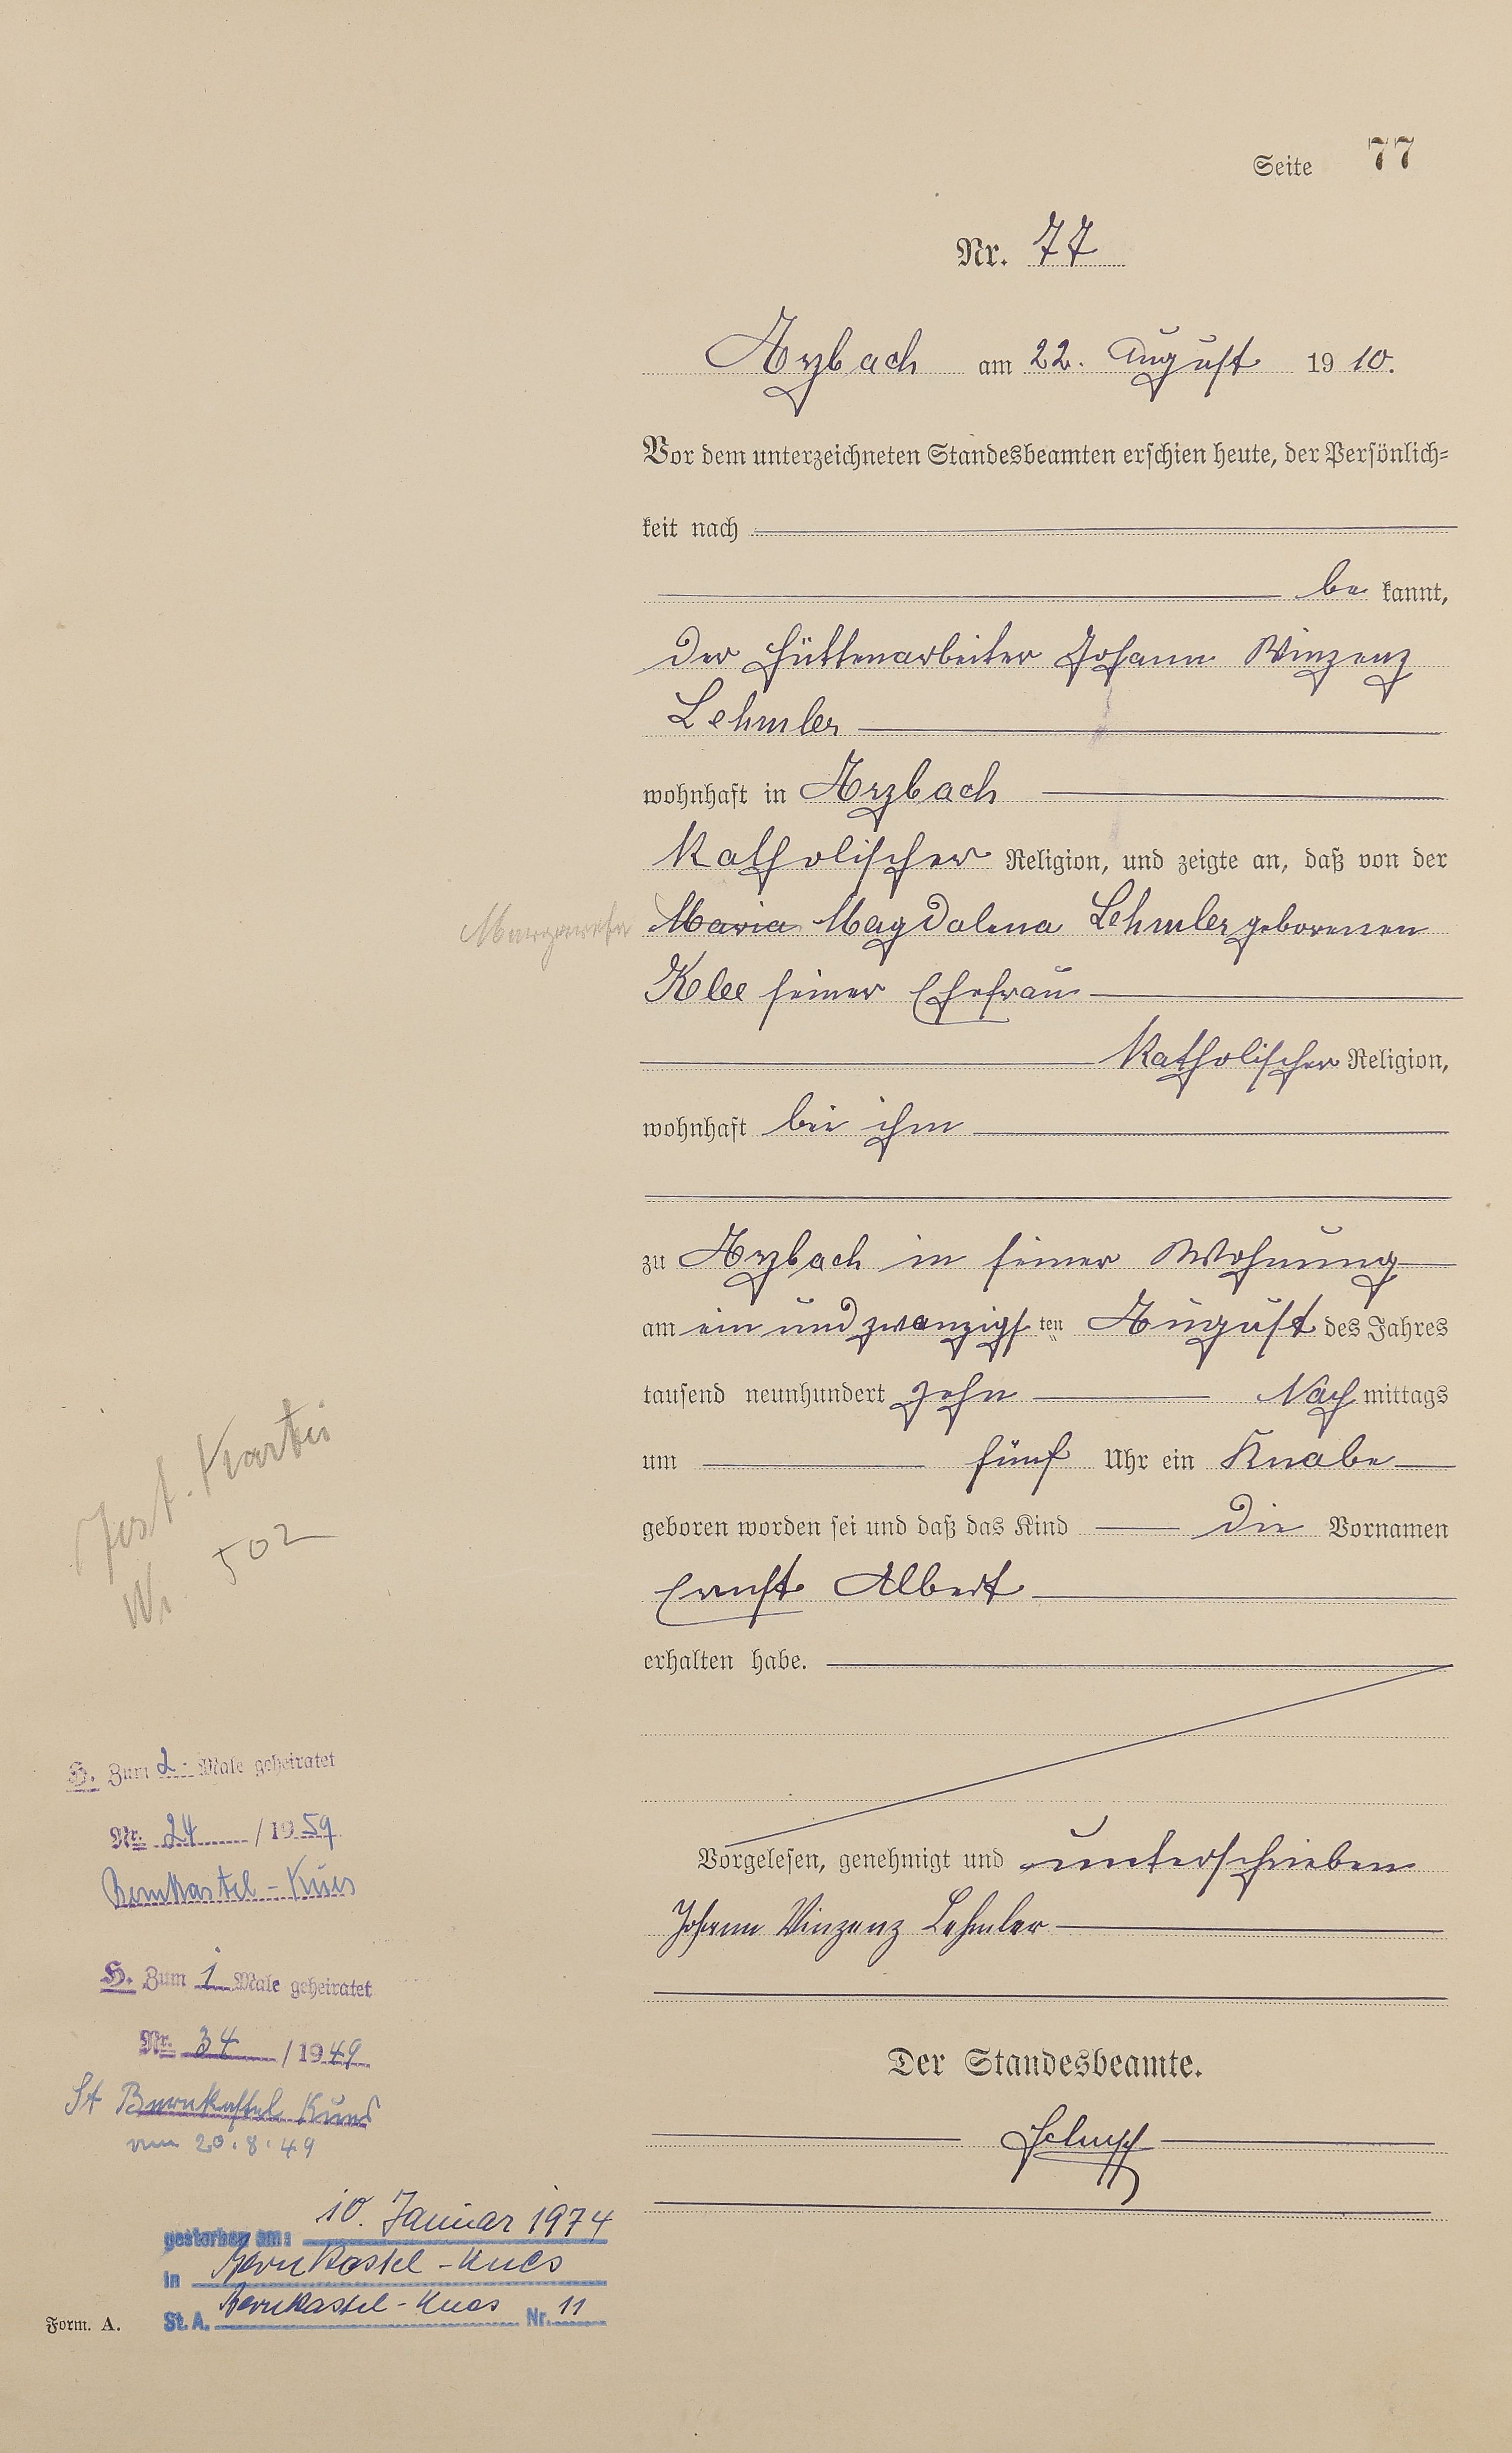 Seite 77
Nr. 77
Arzbach am 22. August 1910.
Vor dem unterzeichneten Standesbeamten erschien heute, der Persönlich-
keit nach
be kannt,
der Hüttenarbeiter Johann Winzenz
Lehmler
wohnhaft in Arzbach
katholischer Religion, und zeigte an, daß von der
Margareta Maria Magdalena Lehmler geborenen
Klee seiner Ehefrau
katholischer Religion,
wohnhaft bei ihm
zu Arzbach in seiner Wohnung
am ein und zwanzigsten August des Jahres
tausend neunhundert zehn Nach mittags
um fünf Uhr ein Knabe
geboren worden sei und daß das Kind die Vornamen
Ernst Albert
erhalten habe.
Vorgelesen, genehmigt und unterschrieben
Johann Vinzenz Lehmler
Der Standesbeamte.
Kartei
502
H. Zum 2. Male geheiratet
Nr. 24 / 1959
Bernkastel-Kues
H. Zum 1 Male geheiratet
Nr. 34 / 1949
St Bernkastel Kues
vom 20.8.49
gestorben am: 10. Januar 1974
in Bernkastel-Kues
St. A. Bernkastel-Kues Nr. 11
Form. A.